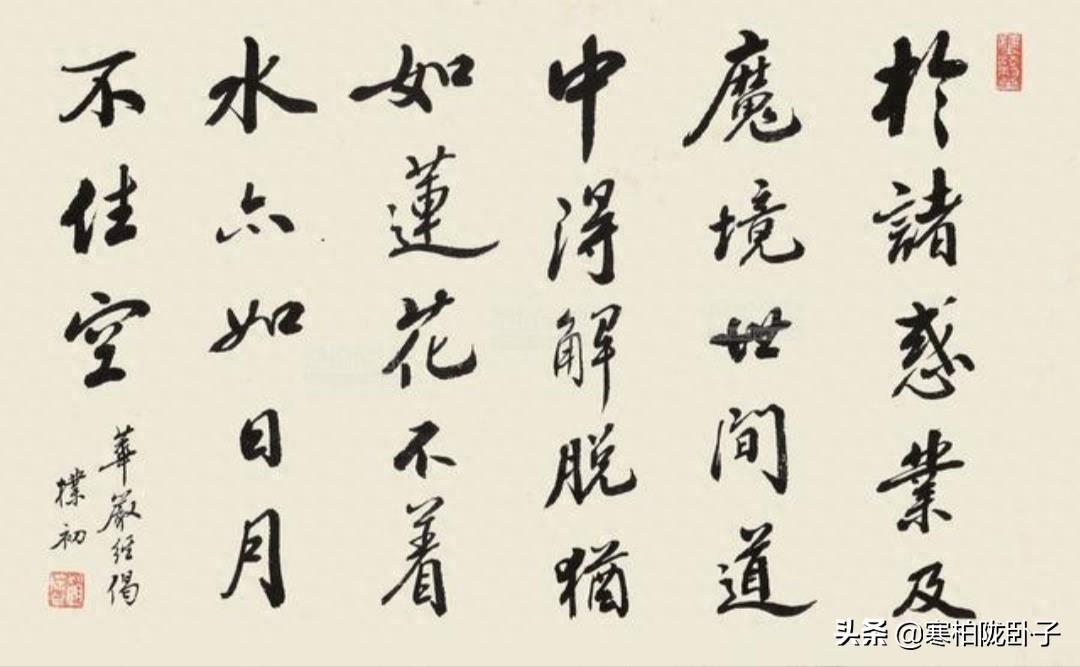 於諸惑業及
魔境世間道
中得解脱猶
如蓮花不着
水亦如日月
不住空
華嚴经偈
樸初
头条 @寒柏陇卧子